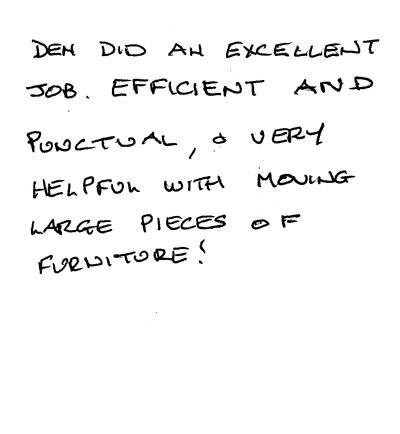 DEN DID AN EXCELLENT
JOB. EFFICIENT AND
PUNCTUAL, & VERY
HELPFUL WITH MOVING
LARGE PIECES OF
FURNITURE!